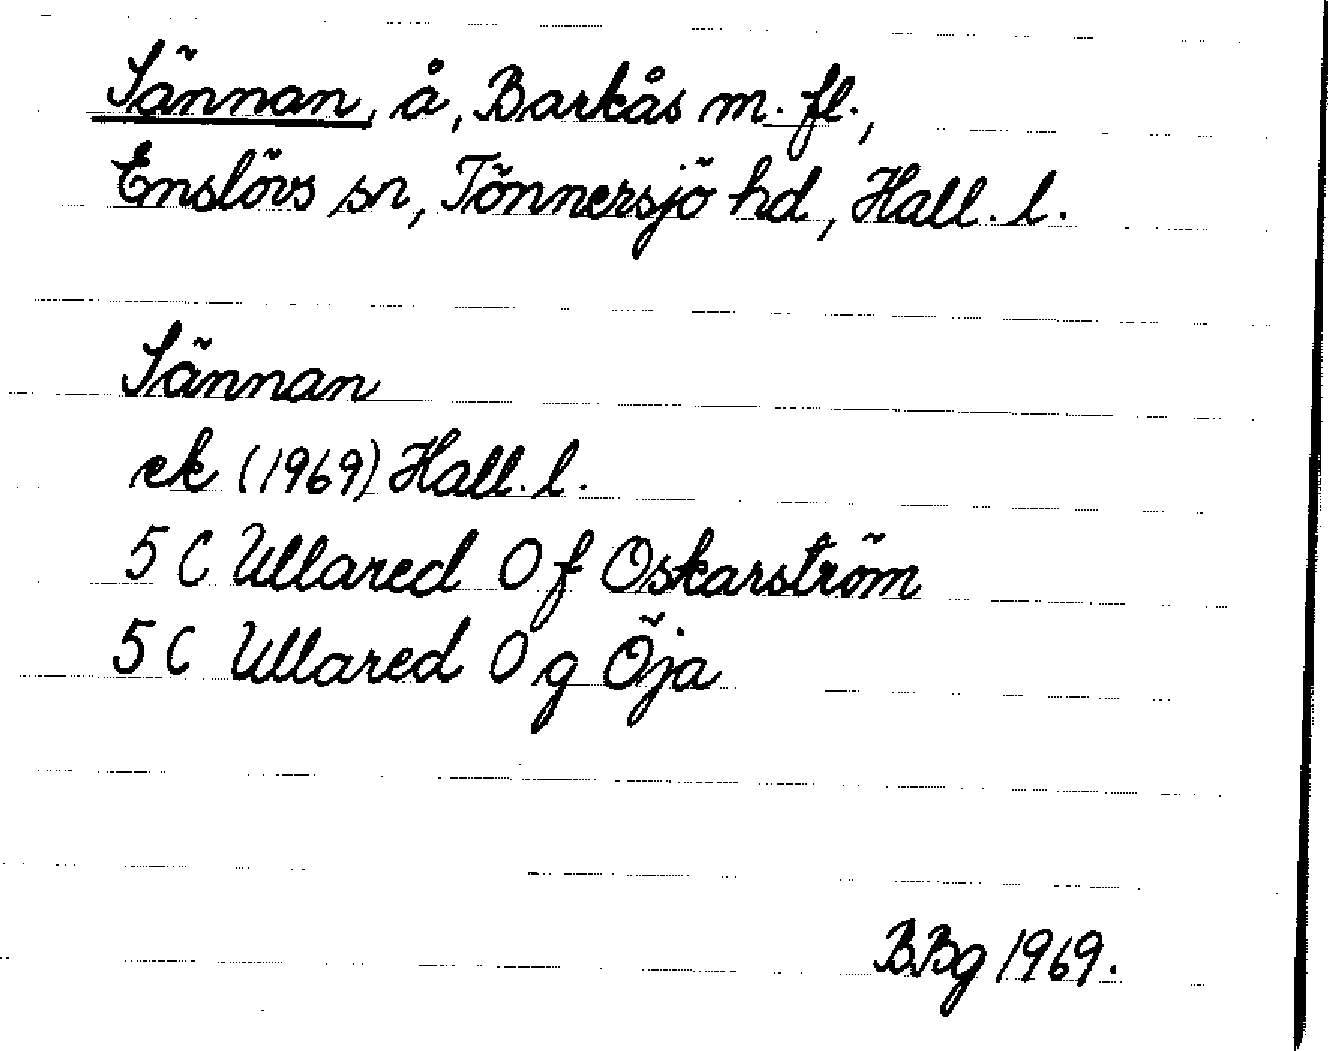 Sännan, å, Barkås m. fl.,
Enslövs sn, Tönnersjö hd, Hall. l.
Sännan
ek (1969) Hall. l.
5 C Ullared 0 f Oskarström
5 C Ullared 0 g Öja
BBg 1969.